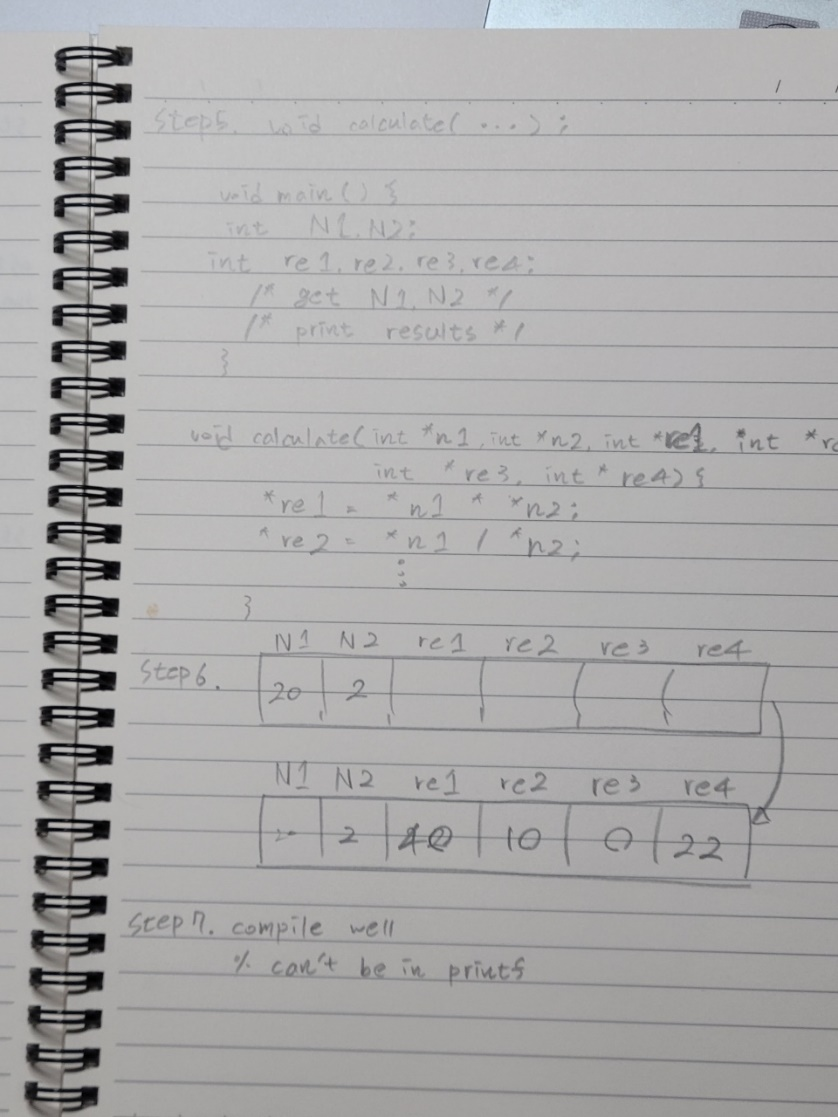 Step5. void calculate( ... ) ;
void main() {
int N1, N2;
int re1, re2, re3, re4;
/* get N1, N2 */
/* print results */
}
void calculate(int *n1, int *n2, int *re1, int *re
int *re3, int* re4) {
*re1 = *n1 * *n2;
*re2 = *n1 / *n2;
⋮
}
N1 N2 re1 re2 re3 re4
Step6. 20 2
N1 N2 re1 re2 re3 re4
2 40 10 0 22
Step7. compile well
% can't be in printf